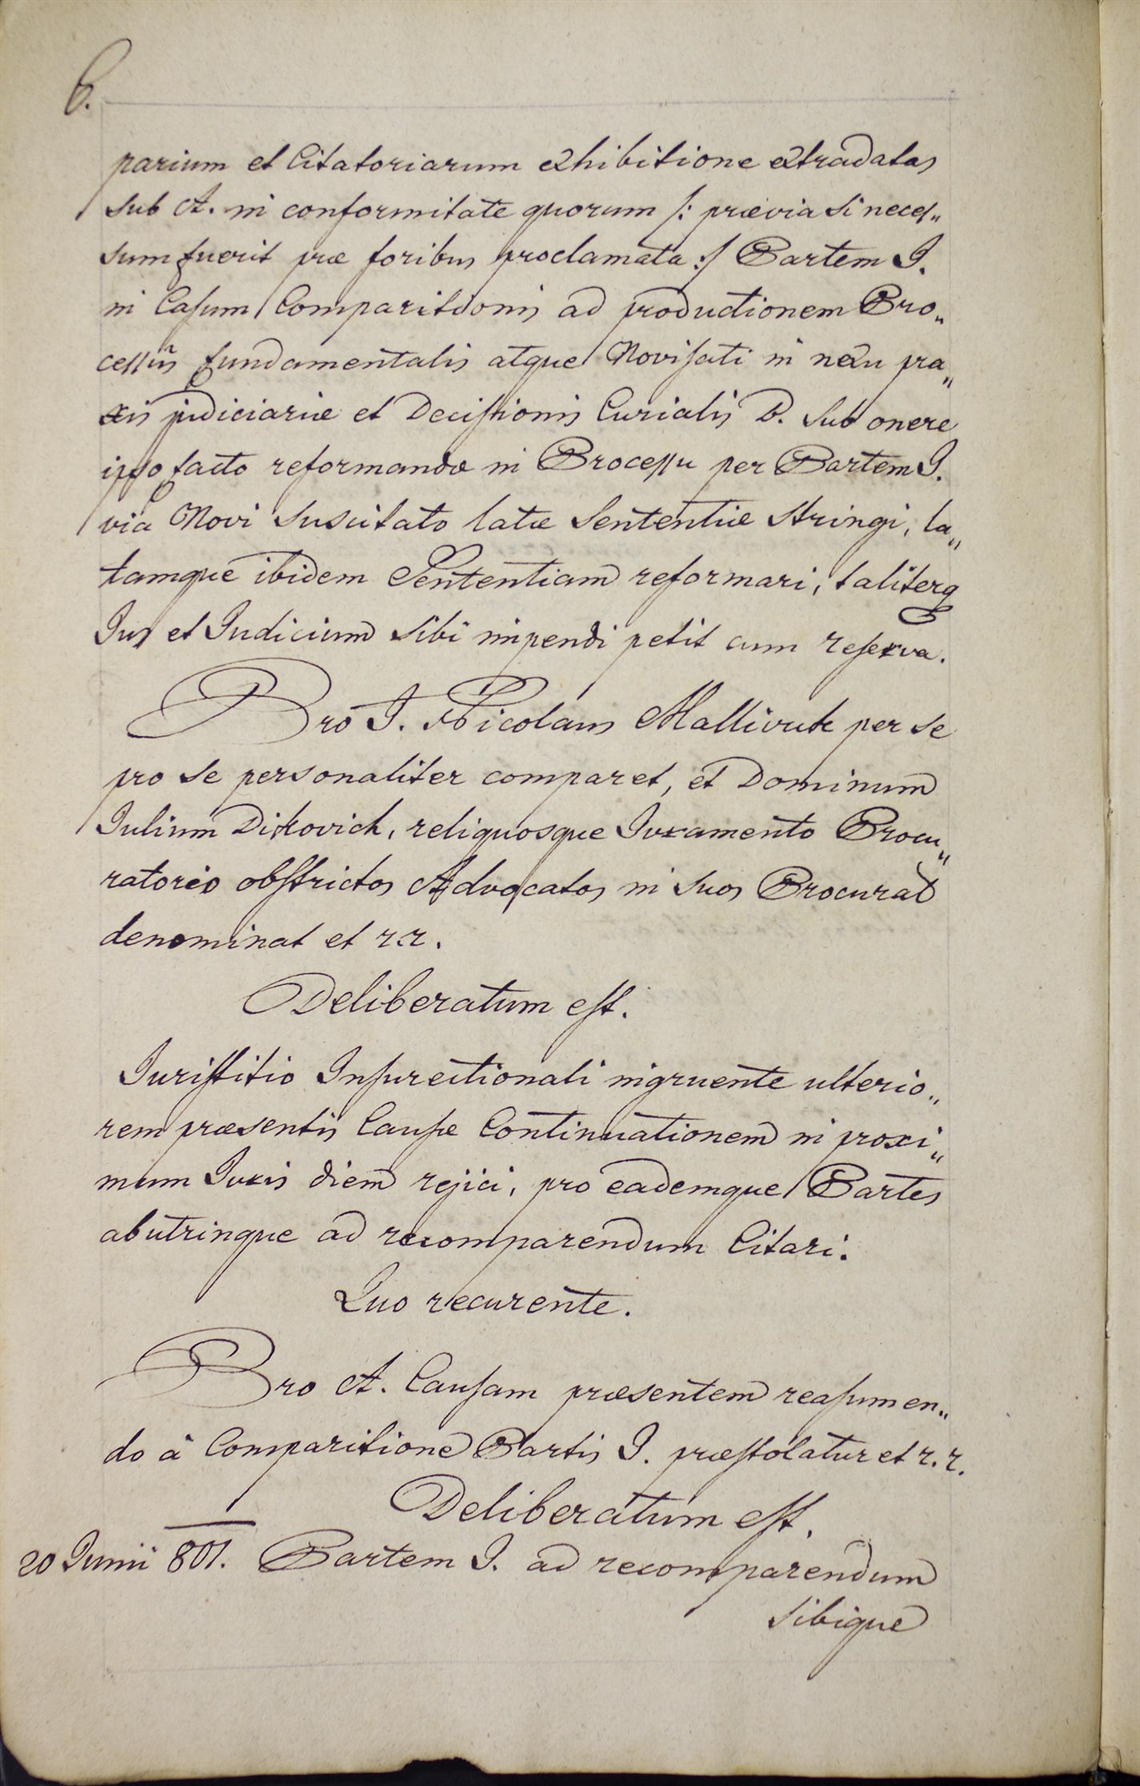 6.
parium et Citatoriarum exhibitione extradatas
sub A. in conformitate quorum /: prævia si neces„
sum fuerit præ foribus proclamata :/ Partem I.
in Casum Comparitionis ad productionem Pro„
cessus fundamentalis atque Novisati in nexu pra„
xis judiciariæ et Decisionis Curialis D. sub onere
ipso facto reformandæ in Processu per Partem I.
via Novi suscitato latæ Sententiæ stringi, la„
tamque ibidem Sententiam reformari, taliterq
Jus et Judicium sibi impendi petit cum reserva.
Pro I. Nicolaus Mallivuk per se
pro se personaliter comparet, et Dominum
Julium Ditrovich, reliquosque Juramento Procu„
ratorio obstrictos Advocatos in suos Procurat
denominat et r.r.
Deliberatum est.
Juristitio Insurectionali ingruente ulterio„
rem præsentis Causæ Continuationem in proxi„
mum Juris diem rejici, pro eademque Partes
abutrinque ad recomparendum Citari.
Quo recurente.
Pro A. Causam præsentem reasumen„
do à Comparitione Partis I. præstolatur et r.r.
Deliberatum est.
20 Junii 801. Partem I. ad recomparendum
sibique